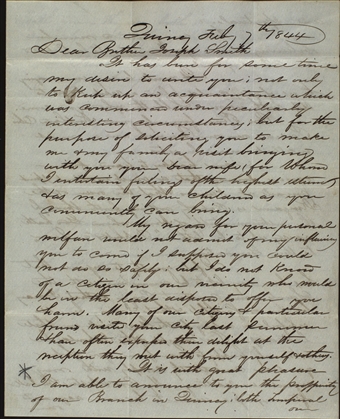 Quincy Feb, 7th 1844
Dear Brother Joseph Smith
It has been for some time
my desire to write you; not only
to keep up an acquaintance which
was commenced under peculiarly
interesting circumstances; but for the
purpose of soliciting you to make
me & my family a visit bringing
with you your wife; for whom
I entertain feelings of the highest esteem,
& as many of your children as you
conveniently can bring.
My regard for your personal
welfare would not admit of my inviting
you to come if I supposed you could
not do so safely: but I do not know
of a citizen in our vicinity who would
be in the least disposed to offer you
harm. Many of our citizens & particular
friends visited your city last summer
& have often expressed their delight at the
reception they met with from yourself & others.
It is with great pleasure
I am able to announce to you the prosperity
of our Branch in Quincy; both temporal